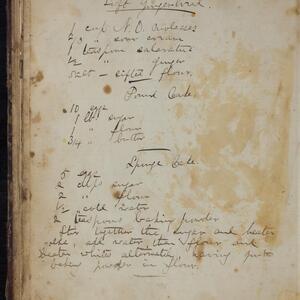 Soft Gingerbread.
1 cup N.O. molasses
1/2 " sour cream
1 teaspoon salaratus
1/2 " ginger
Salt — sifted flour.
Pound Cake
10 eggs
1 lb sugar
1 " flour
3/4 " butter
Sponge Cake.
5 eggs
2 cups sugar
2 " flour
1/2 " cold water
2 teaspoons baking powder
Stir together the sugar and beaten
yolks, add water then flour and
beaten whites alternately, having put
baking powder in flour.